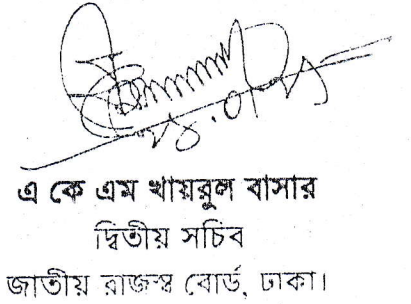 এ কে এম খায়রুল বাসার
দ্বিতীয় সচিব
জাতীয় রাজস্ব বোর্ড, ঢাকা।